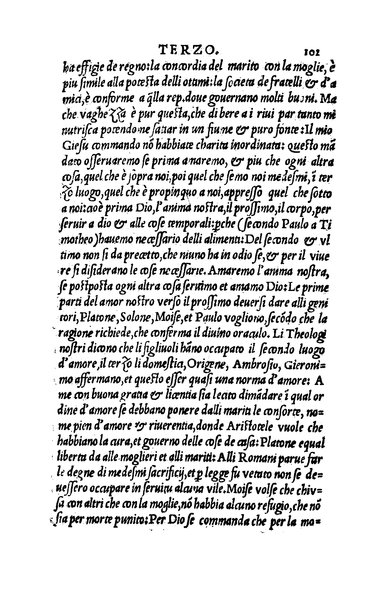 TERZO. 102
ha effigie de regno: la concordia del marito con la moglie, è
piu simile alla potesta delli ottimi: la societa de fratelli & d'a
mici, è conforme a q̃lla rep. doue gouernano molti buoni. Ma
che vaghe è pur questa, che di bere a i riui par tanto mi
nutrisca potendo me satiar in un fiume & puro fonte: Il mio
Giesu commando nõ habbiate charita inordinata: questo mã
dato osseruaremo se prima amaremo, & piu che ogni altra
cosa, quel che è sopra noi, poi quel che se mo noi medesmi, è ter
luogo, quel che è propinquo a noi, appresso quel che sotto
a noi: cioè prima Dio, l'anima nostra, il prossimo, il corpo, per
seruir a dio & alle cose temporali: pche (secondo Paulo a Ti
motheo) hauemo necessario delli alimenti: Del secondo & vl
timo non si da precetto, che niuno ha in odio se, & per il viue
re si disiderano le cose necessarie. Amaremo l'anima nostra,
se postposta ogni altra cosa seruimo et amamo Dio: Le prime
parti del amor nostro verso il prossimo deuersi dare alli geni
tori, Platone, Solone, Moise, et Paulo vogliono, secõdo che la
ragione richiede, che conferma il diuino oraculo. Li Theologi
nostri dicono che li figliuoli hãno occupato il secondo luogo
d'amore, il li domestia, Origene, Ambrosio, Gieroni=
mo affermano, et questo esser quasi una norma d'amore: A
me con buona gratia & licentia sia leato dimãdare ĩ qual or
dine d'amore se debbano ponere dalli mariti le consorte, no=
me pien d'amore & riuerentia, doue Aristotele vuole che
habbiano la cura, et gouerno delle cose de casa: Platone equal
liberta da alle moglieri et alli mariti: Alli Romani parue far
le degne di medesmi sacrificij, et p legge fu vetato non se de=
uessero occupare in seruitu alcuna vile. Moise volse che chiv=
sa con altri che con la moglie, nõ habbia alcuno refugio, che nõ
sia per morte punito: Per Dio se commanda che per la mo=